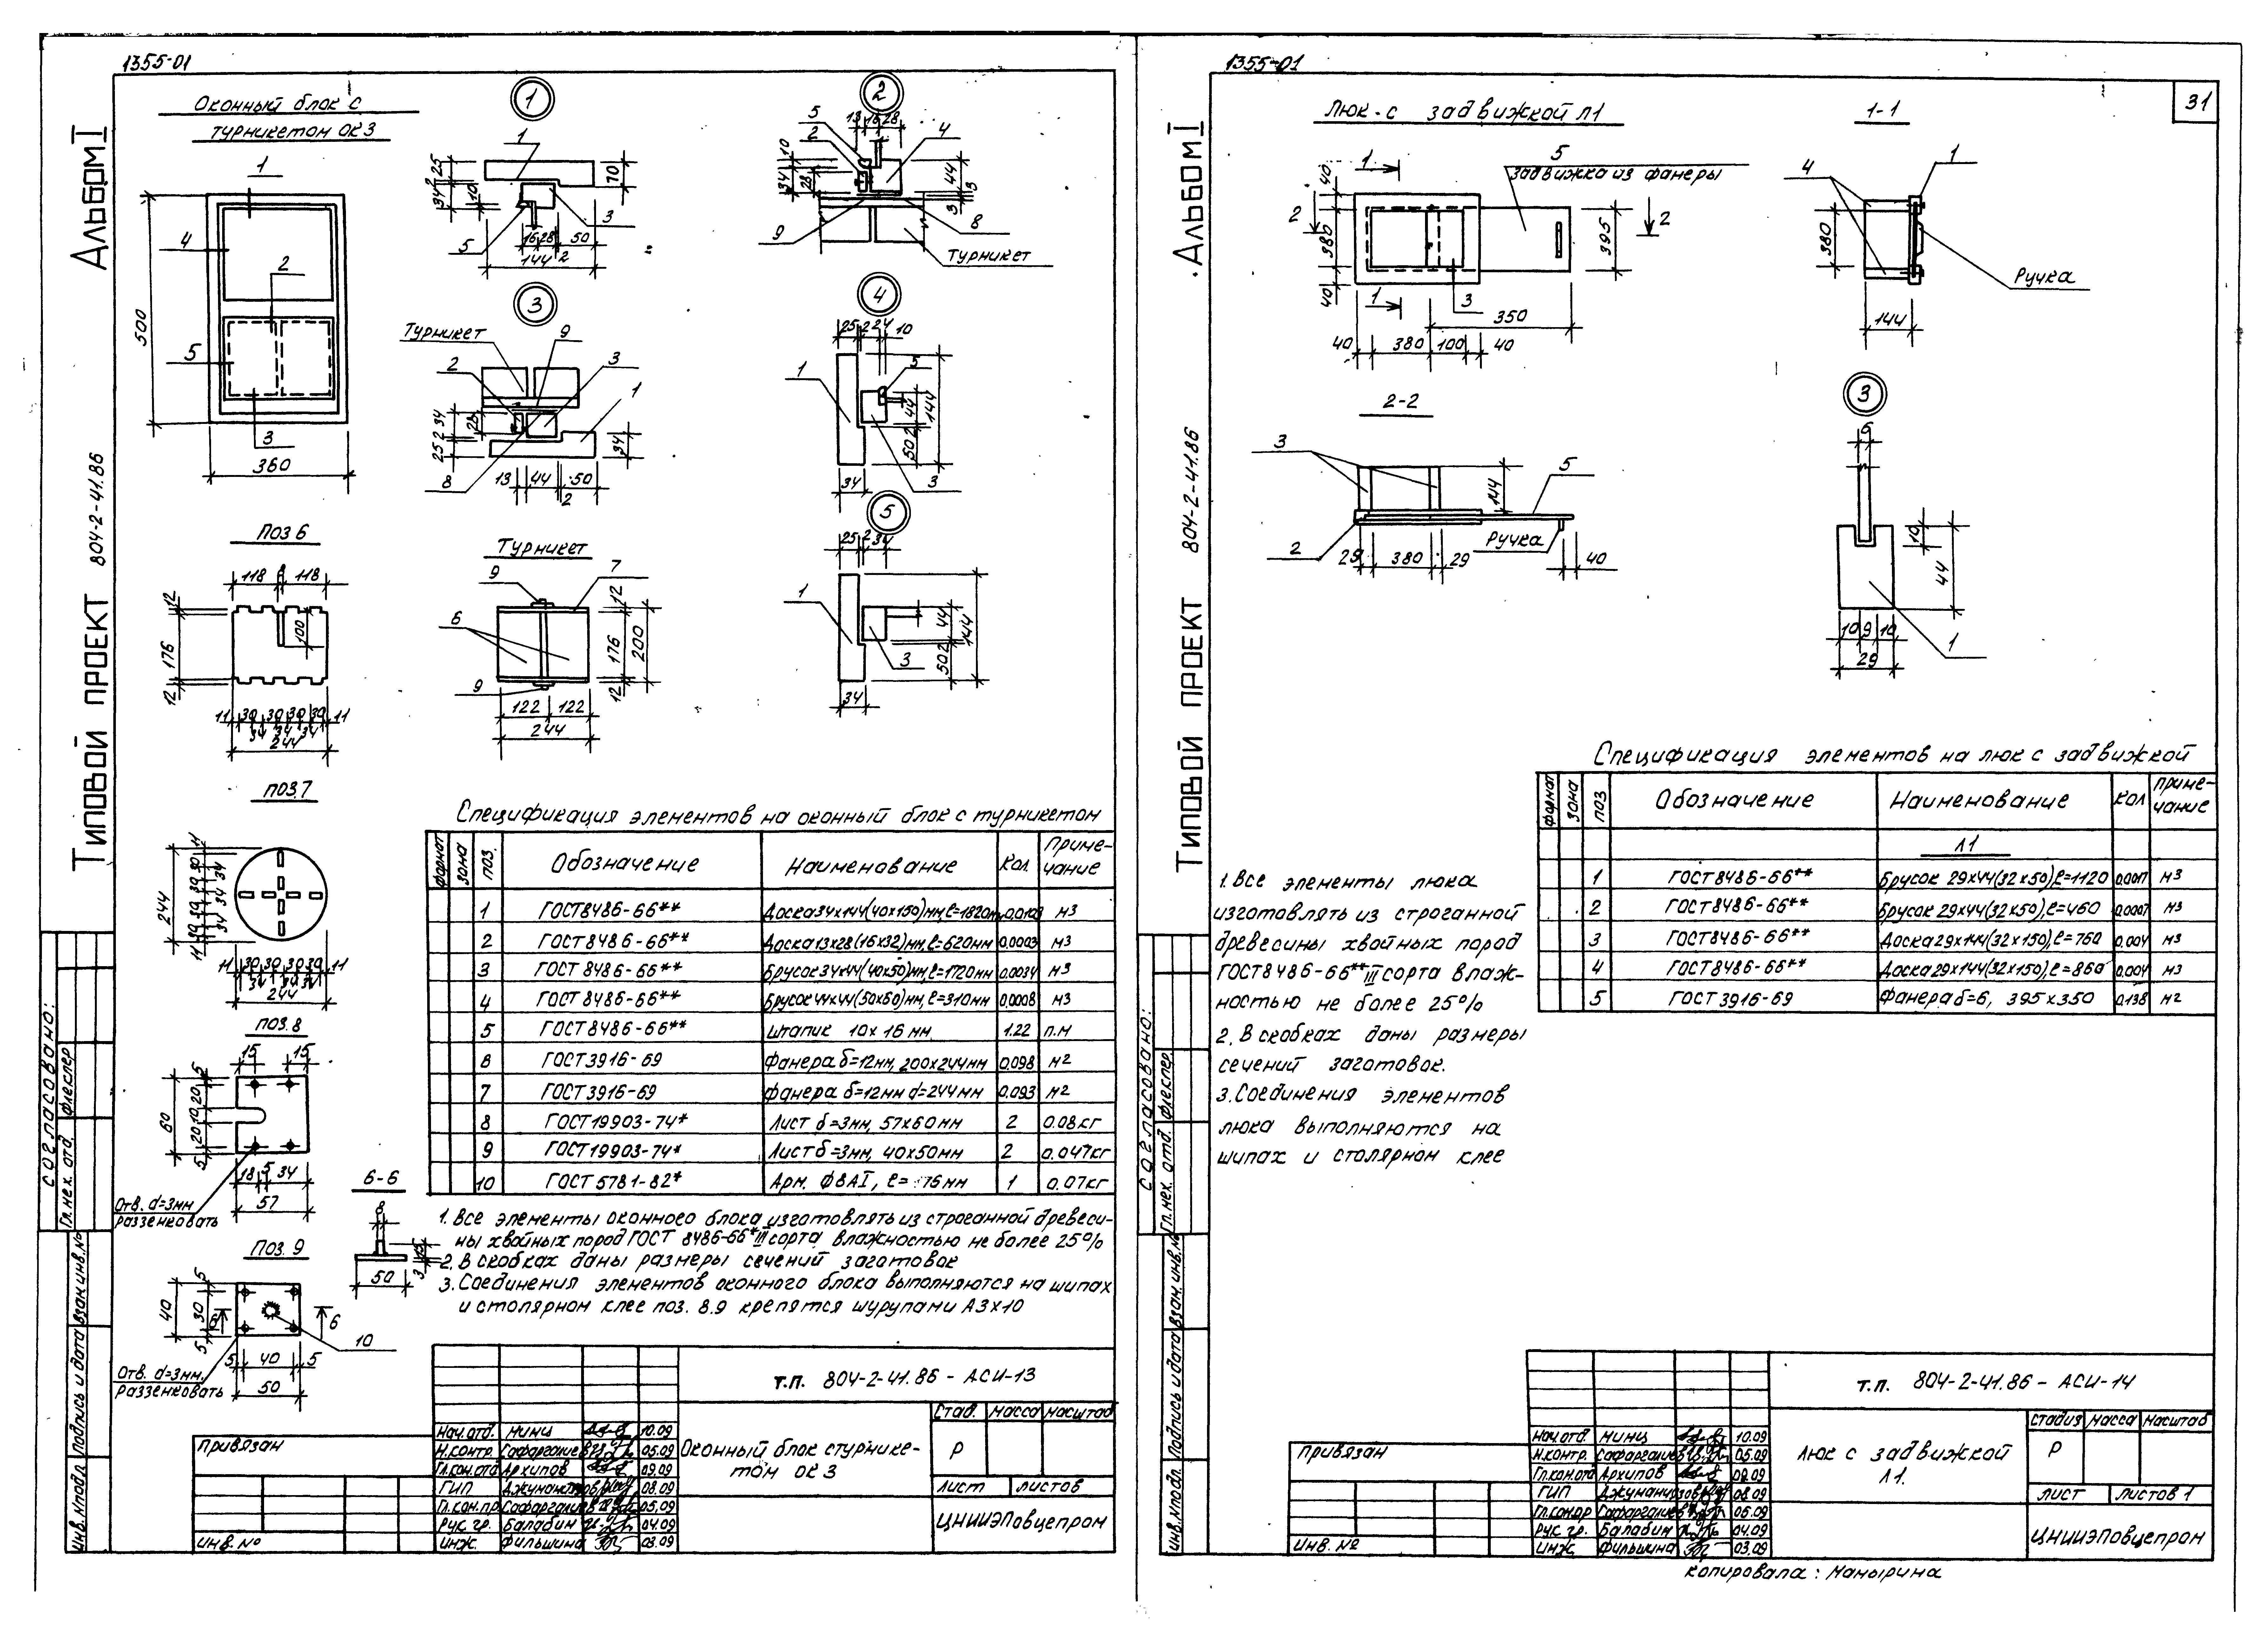 1355-01
Альбом I
Типовой проект 804-2-41.86
Оконный блок с
турникетом ОК3
1
4
2
5
3
500
360
1
1
3
5
25
2
34
10
70
16
28
50
144
2
2
5
2
4
9
8
13
16
28
10
34
28
44
3
3
Турникет
3
Турникет
9
3
2
1
8
34
2
25
28
34
13
44
50
2
4
25
2
24
10
1
5
3
44
144
2
50
34
5
25
2
34
1
3
44
144
2
50
34
Поз 6
118
8
118
12
176
12
100
11
30
30
30
30
11
34
34
34
244
Турникет
9
7
6
9
12
176
200
12
122
122
244
Поз.7
244
11
30
34
30
34
30
34
30
11
11
30
30
30
30
11
34
34
34
244
Поз.8
15
15
5
20
10
20
5
60
18
5
34
57
Отв. d=3мм
раззенковать
6-6
8
15
3
50
Поз. 9
5
30
5
40
6
6
10
5
40
5
50
Отв. d=3мм,
раззенковать
Спецификация элементов на оконный блок с турникетом
Формат
Зона
Поз.
Обозначение
Наименование
Кол.
Приме-
чание
1 ГОСТ8486-66** Доска34х144(40х150)мм,ℓ=1820м м3
2 ГОСТ8486-66** Доска13х28(16х32)мм,ℓ=620мм 0,0003 м3
3 ГОСТ 8486-66** Брусок34х44(40х50)мм,ℓ=1720мм 0.0034 м3
4 ГОСТ 8486-66** Брусок44х44(50х60)мм,ℓ=310мм 0,0008 м3
5 ГОСТ8486-66** Штапик 10х16 мм. 1.22 п.м
6 ГОСТ3916-69 Фанера б=12мм, 200х244мм 0,098 м2
7 ГОСТ3916-69 Фанера б=12мм d=244мм 0,093 м2
8 ГОСТ19903-74* Лист б=3мм, 57х60мм 2 0.08кг
9 ГОСТ19903-74* Лист б=3мм, 40х50мм 2 0.047кг
10 ГОСТ 5781-82* Арм. Ф8АI, ℓ= 76мм 1 0.07кг
1. Все элементы оконного блока изготовлять из строганной древеси-
ны хвойных пород ГОСТ 8486-66* III сорта влажностью не более 25%
2. В скобках даны размеры сечений заготовок
3. Соединения элементов оконного блока выполняются на шипах
и столярном клее поз. 8.9 крепятся шурупами А3х10
т.п. 804-2-41.86 - АСИ-13
Нач.отд. Минц 10.09
Н.контр. 05.09
Гл.кон.отд Архипов 09.09
ГИП 08.09
Гл.кон.пр 05.09
Рук. гр. Балабин 04.09
Инж. Фильшина 03.09
Оконный блок с турнике-
том ОК3
Стад.
Масса
Масштаб
Р
Лист
Листов
ЦНИИЭПовцепром
Привязан
Инв. №
Согласовано:
Гл.мех. отд. Флеклер
Инв.№подл. Подпись и дата Взам.инв.№
1355-01
31
Альбом I
Типовой проект 804-2-41.86
Люк с задвижкой Л1
1
1
2
2
5
Задвижка из фанеры
40
380
40
395
3
350
40
380
100
40
1-1
1
4
380
Ручка
144
2-2
3
5
2
144
Ручка
29
380
29
40
3
6
10
44
10
9
10
29
1
Спецификация элементов на люк с задвижкой
Формат
Зона
Поз
Обозначение
Наименование
Кол
Приме-
чание
Л1
1 ГОСТ8486-66** Брусок 29х44(32х50),ℓ=1120 0,0017 м3
2 ГОСТ8486-66** Брусок 29х44(32х50),ℓ=460 0,0007 м3
3 ГОСТ8486-66** Доска29х144(32х150),ℓ=760 0,004 м3
4 ГОСТ8486-66** Доска29х144(32х150),ℓ=860 0,004 м3
5 ГОСТ 3916-69 Фанера б=6, 395х350 0,138 м2
1. Все элементы люка
изготовлять из строганной
древесины хвойных пород
ГОСТ8486-66** III сорта влаж-
ностью не более 25%
2. В скобках даны размеры
сечений заготовок.
3. Соединения элементов
люка выполняются на
шипах и столярном клее
т.п. 804-2-41.86 - АСИ-14
Нач.отд Минц 10.09
Н.контр. 05.09
Гл.кон.отд Архипов 09.09
ГИП 08.09
Гл.кон.пр 05.09
Рук гр. Балабин 04.09
Инж Фильшина 03.09
Люк с задвижкой
Л1.
Стадия
Масса
Масштаб
Р
Лист
Листов 1
ЦНИИЭПовцепром
Привязан
Инв. №
Согласовано:
Гл.мех. отд. Флеклер.
Инв.№подл. Подпись и дата Взам.инв.№
Копировала: Манырина